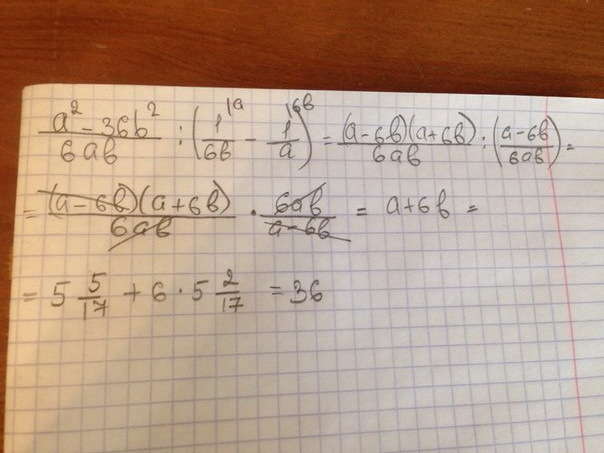 (a² - 36b²)/(6ab) : (1/(6b) ^(1a) - 1/a ^(6b)) = ((a-6b)(a+6b))/(6ab) : ((a-6b)/(6ab)) =
= ((a-6b)(a+6b))/(6ab) · (6ab)/(a-6b) = a+6b =
= 5 5/17 + 6 · 5 2/17 = 36